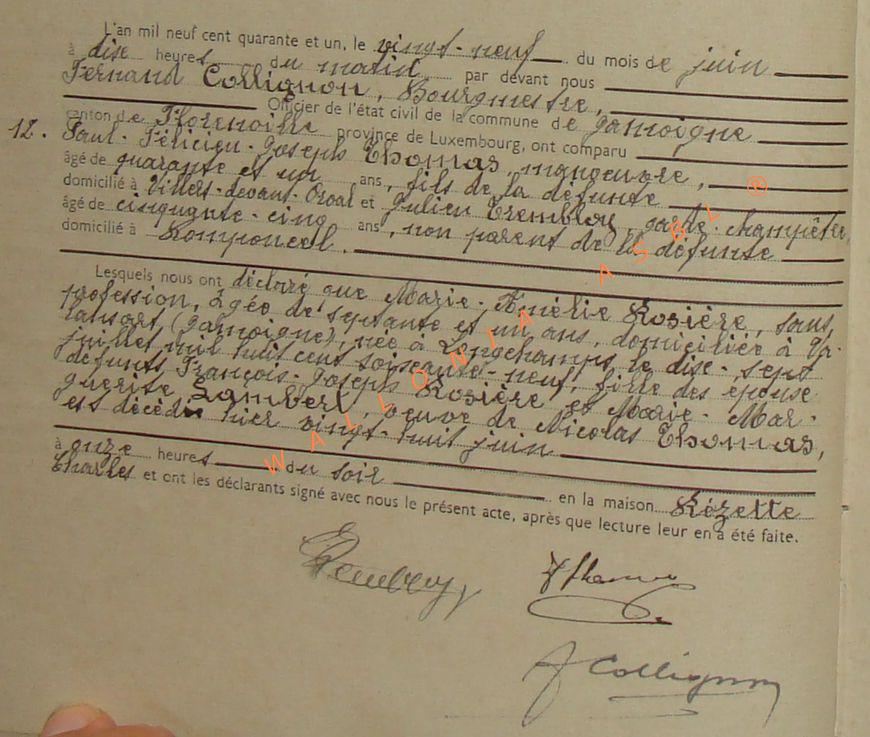 L'an mil neuf cent quarante et un, le vingt-neuf du mois de juin
à dise heures du matin par devant nous
Fernand Collignon, Bourgmestre,
Officier de l'état civil de la commune de Jamoigne
canton de Florenville province de Luxembourg, ont comparu
12. Paul-Félicien-Joseph Thomas manoeuvre,
âgé de quarante et un ans, fils de la défunte
domicilié à Villers-devant-Orval et Julien Trembloy, garde-champêtre,
âgé de cinquante-cinq ans, non parent de la défunte
domicilié à Romponcel.
Lesquels nous ont déclaré que Marie-Amélie Rosière, sans
profession, âgée de septante et un ans, domiciliée à
(Jamoigne), née à Longchamps, le dise-sept
juillet mil huit cent soiseante-neuf, fille des épouse
défunts François-Joseph Rosière et Marie-Mar-
guerite Lambert, veuve de Nicolas Thomas,
est décédée hier vingt-huit juin
à onze heures du soir en la maison Rézette
Charles et ont les déclarants signé avec nous le présent acte, après que lecture leur en a été faite.
Trembloy
Thomas
F Collignon
WALLONIA ASBL ®